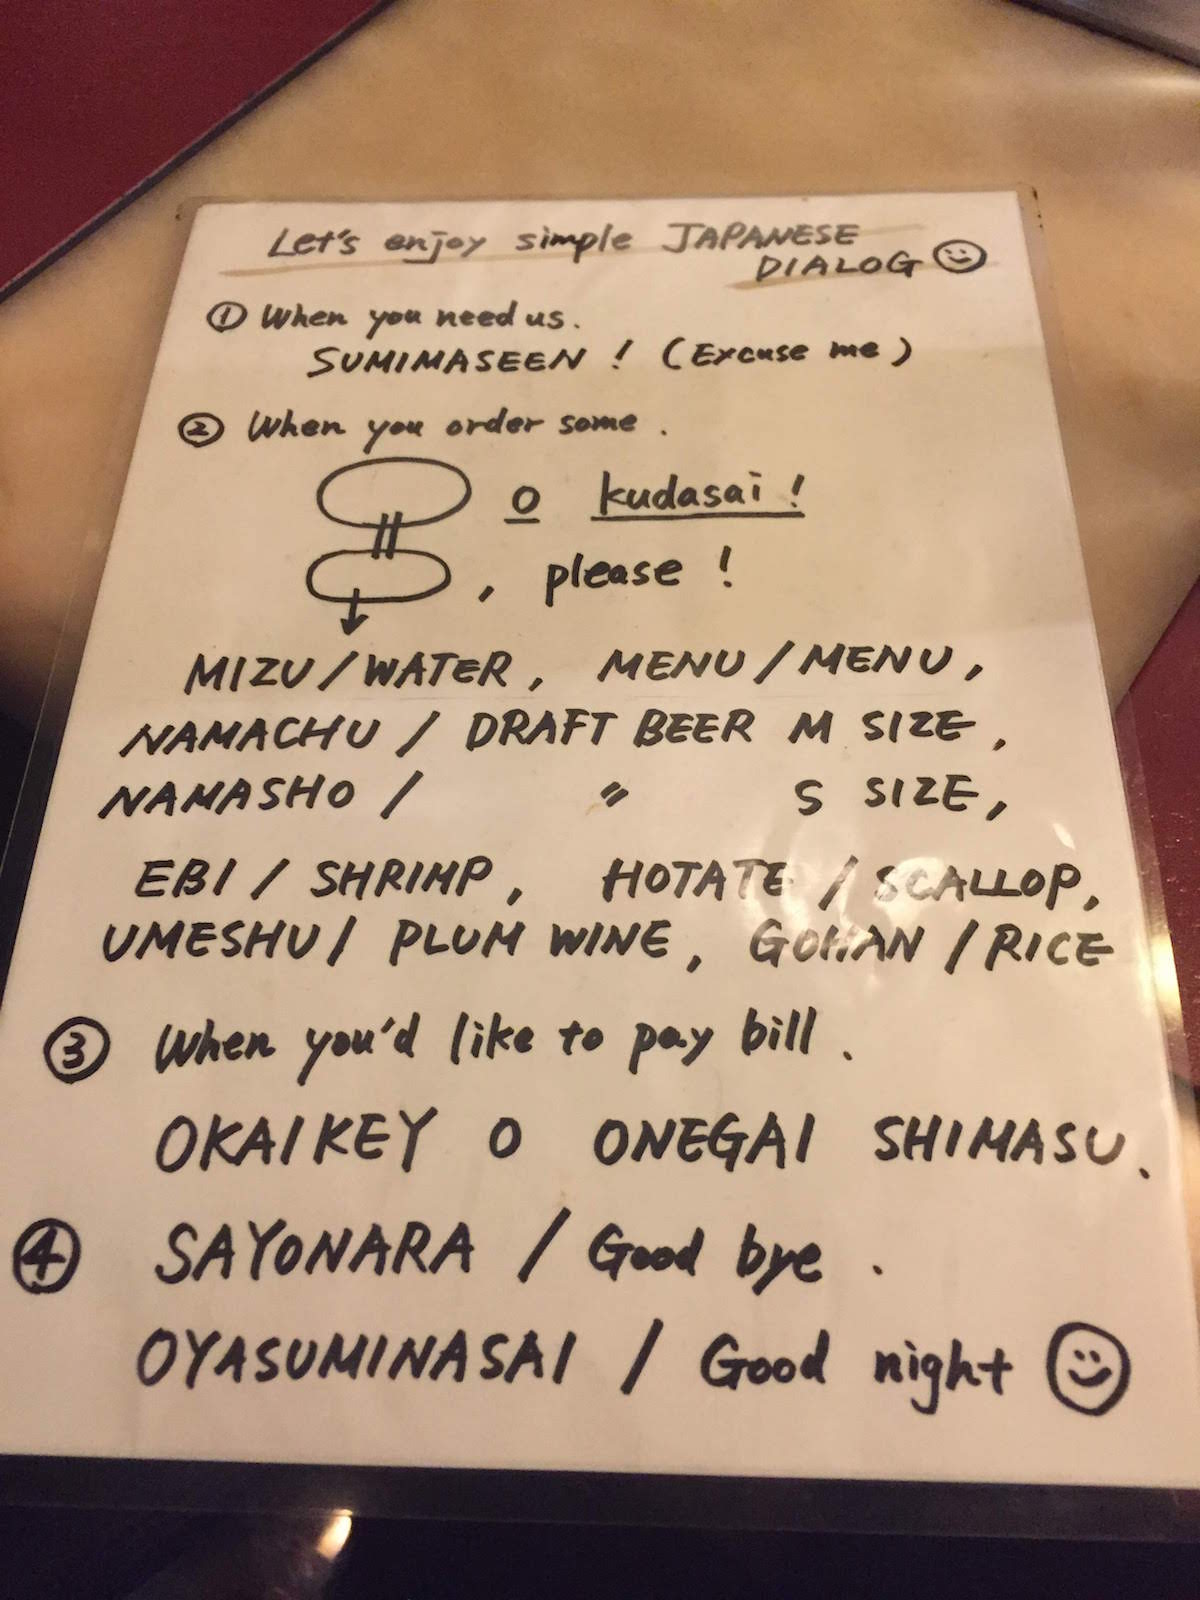 Let's enjoy simple JAPANESE
DIALOG
① When you need us.
SUMIMASEEN ! (Excuse me)
② When you order some.
o kudasai !
, please !
MIZU / WATER, MENU / MENU,
NAMACHU / DRAFT BEER M SIZE,
NAMASHO / 〃 S SIZE,
EBI / SHRIMP, HOTATE / SCALLOP,
UMESHU / PLUM WINE, GOHAN / RICE
③ When you'd like to pay bill.
OKAIKEY O ONEGAI SHIMASU.
④ SAYONARA / Good bye.
OYASUMINASAI / Good night